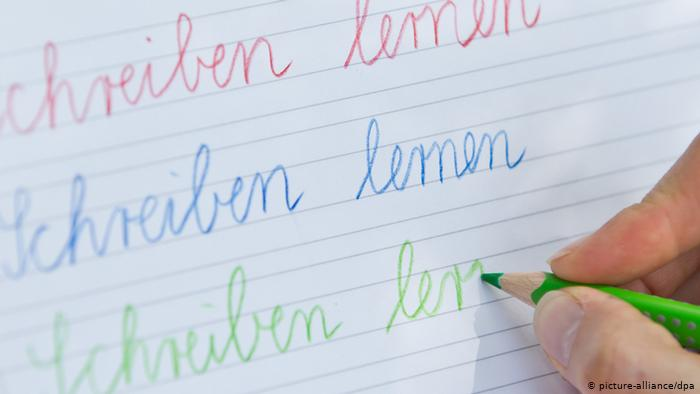 chreiben lernen
Schreiben lernen
Schreiben lern
© picture-alliance/dpa